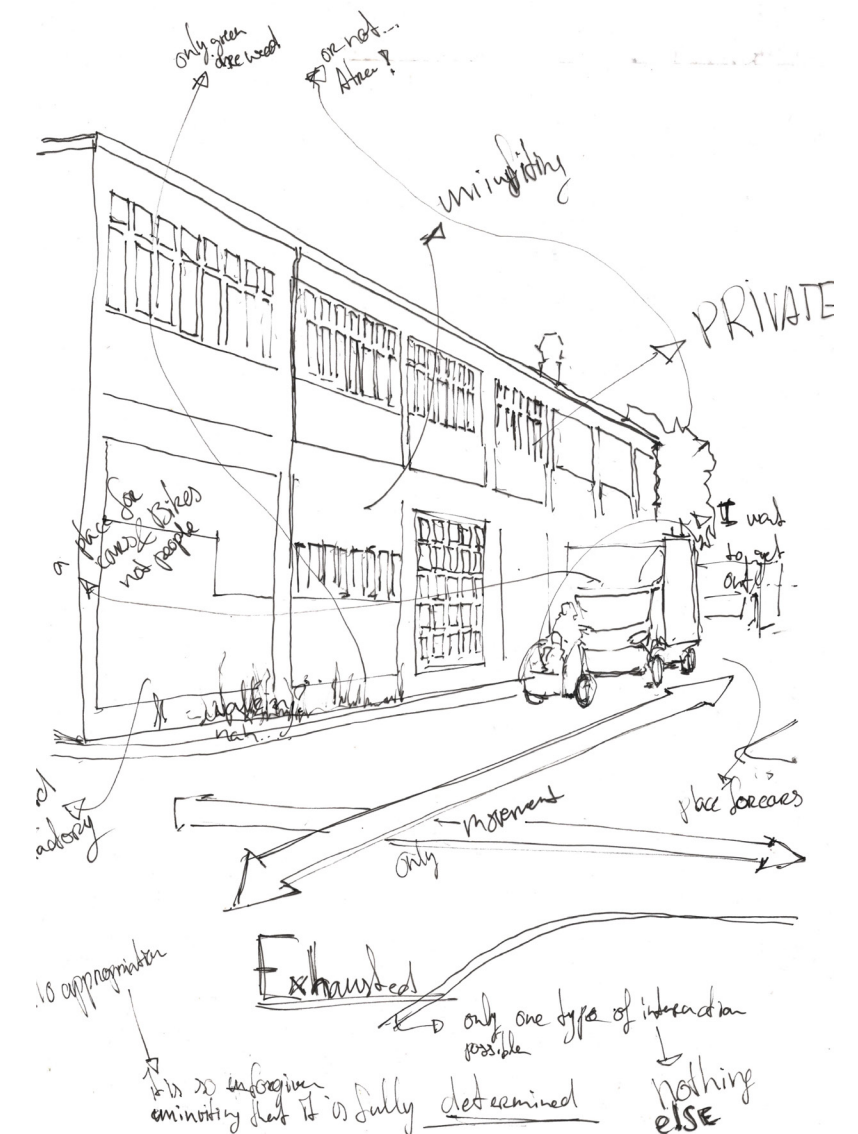 only green
are weed
or not...
A tree!
uninfiting
PRIVATE
a place for
cars & Bikes
not people
I want
to get
out!
nah...
place for cars
is
movement
only
Exhausted
to appropriation
only one type of interaction
possible
nothing
ELSE
it is so unforgiven
uninviting that it is fully determined